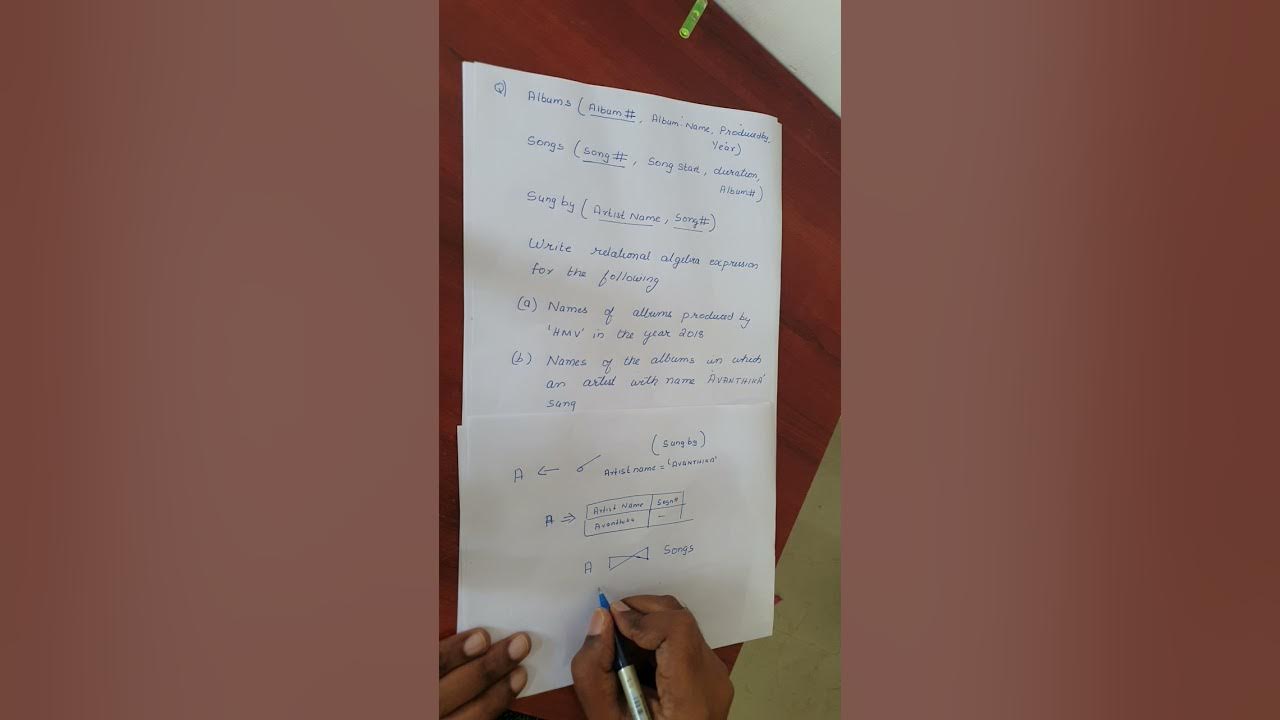 Q) Albums (Album#, Album Name, Producedby,
Year)
Songs (song#, Song start, duration,
Album#)
Sung by (Artist Name, Song#)
Write relational algebra expression
for the following
(a) Names of albums produced by
'HMV' in the year 2018
(b) Names of the albums in which
an artist with name 'AVANTHIKA'
sung
A ← σ Artist name = 'AVANTHIKA' (Sung by)
A ⇒ Artist Name Song#
Avanthika —
A ⋈ Songs